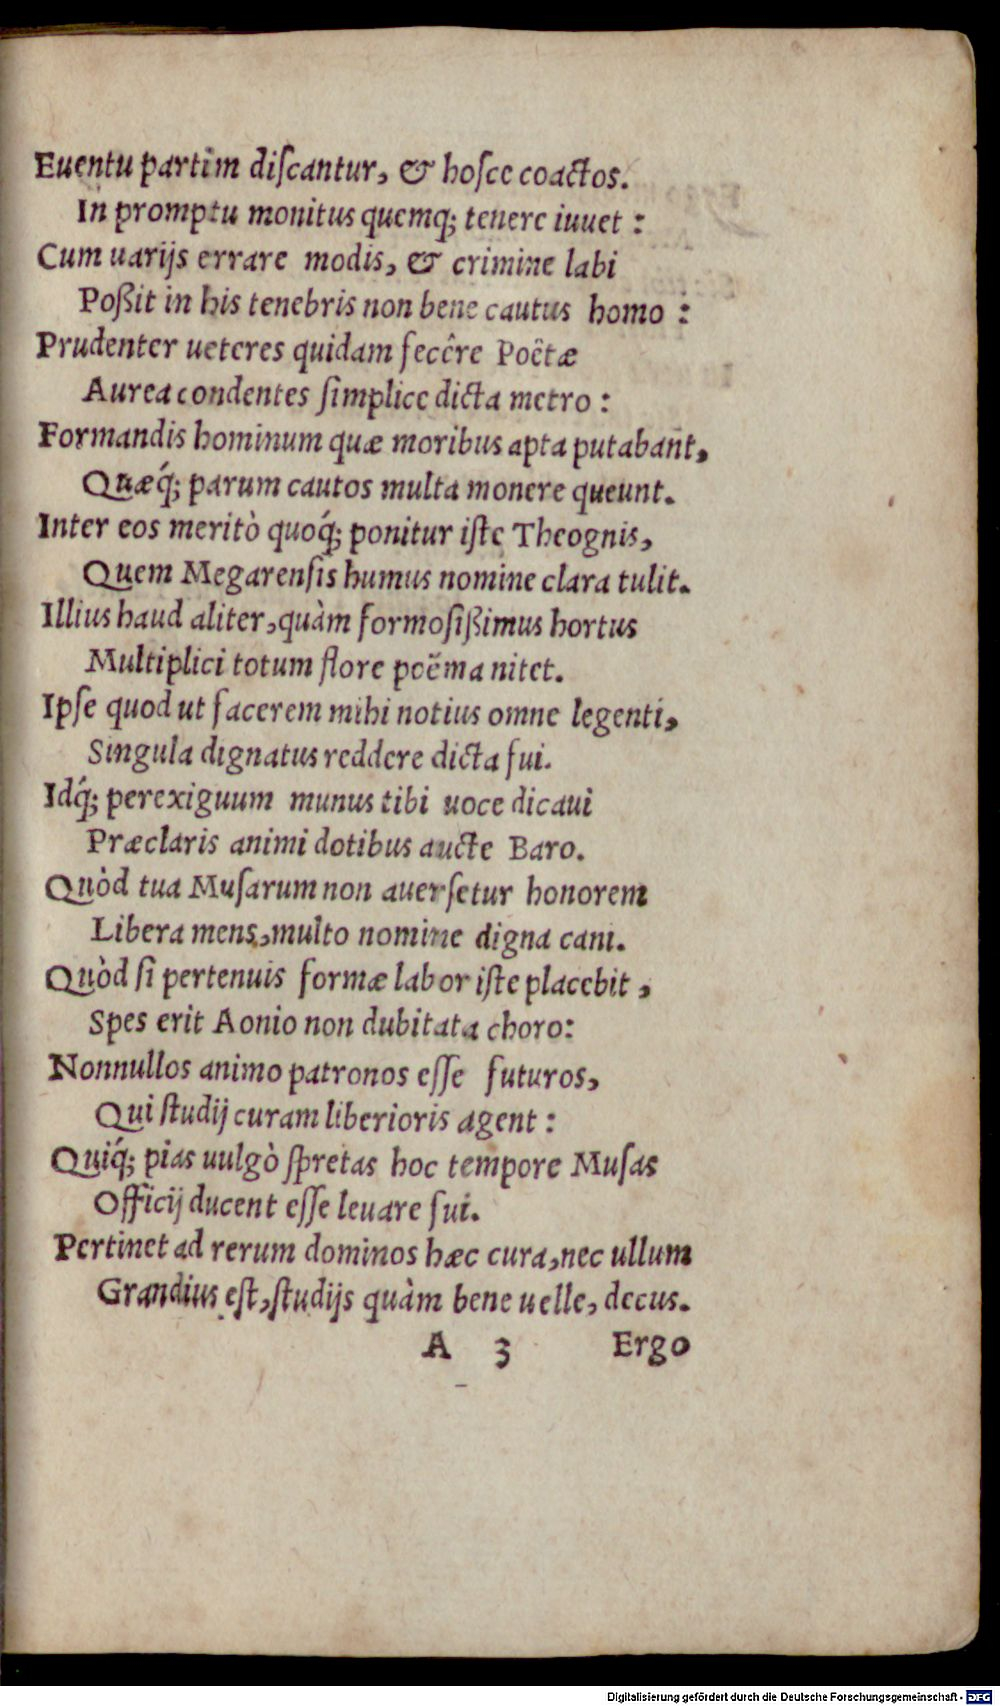 Euentu partim diſcantur, & hoſce coactos.
In promptu monitus quemq; tenere iuuet :
Cum uarijs errare modis, & crimine labi
Poßit in his tenebris non bene cautus homo :
Prudenter ueteres quidam fecêre Poëtæ
Aurea condentes ſimplice dicta metro :
Formandis hominum quæ moribus apta putabant,
Quæq́; parum cautos multa monere queunt.
Inter eos meritò quoq́; ponitur iſte Theognis,
Quem Megarenſis humus nomine clara tulit.
Illius haud aliter, quàm formoſißimus hortus
Multiplici totum flore poëma nitet.
Ipſe quod ut facerem mihi notius omne legenti,
Singula dignatus reddere dicta fui.
Idq́; perexiguum munus tibi uoce dicaui
Præclaris animi dotibus aucte Baro.
Quòd tua Muſarum non auerſetur honorem
Libera mens, multo nomine digna cani.
Quòd ſi pertenuis formæ labor iſte placebit,
Spes erit Aonio non dubitata choro:
Nonnullos animo patronos eſſe futuros,
Qui ſtudij curam liberioris agent :
Quiq́; pias uulgò ſpretas hoc tempore Muſas
Officij ducent eſſe leuare ſui.
Pertinet ad rerum dominos hæc cura, nec ullum
Grandius eſt, ſtudijs quàm bene uelle, decus.
A 3 Ergo
Digitalisierung gefördert durch die Deutsche Forschungsgemeinschaft - DFG